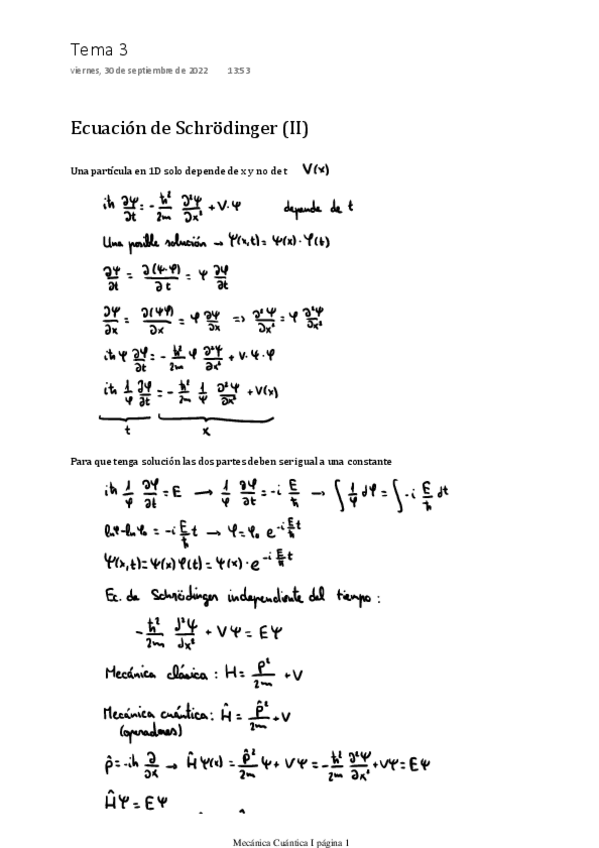 Tema 3
viernes, 30 de septiembre de 2022 13:53
Ecuación de Schrödinger (II)
Una partícula en 1D solo depende de x y no de t V(x)
iħ ∂Ψ/∂t = -ħ²/2m ∂²Ψ/∂x² + V·Ψ depende de t
Una posible solución → Ψ(x,t) = ψ(x)·φ(t)
∂Ψ/∂t = ∂(ψ·φ)/∂t = ψ ∂φ/∂t
∂Ψ/∂x = ∂(ψφ)/∂x = φ ∂ψ/∂x => ∂²Ψ/∂x² = φ ∂²ψ/∂x²
iħ ψ ∂φ/∂t = -ħ²/2m φ ∂²ψ/∂x² + V·ψ·φ
iħ 1/φ ∂φ/∂t = -ħ²/2m 1/ψ ∂²ψ/∂x² + V(x)
t x
Para que tenga solución las dos partes deben ser igual a una constante
iħ 1/φ ∂φ/∂t = E → 1/φ ∂φ/∂t = -i E/ħ → ∫ 1/φ dφ = ∫ -i E/ħ dt
lnφ - lnφ₀ = -i E/ħ t → φ = φ₀ e^(-i E/ħ t)
Ψ(x,t) = ψ(x) φ(t) = ψ(x)·e^(-i E/ħ t)
Ec. de Schrödinger independiente del tiempo:
-ħ²/2m d²ψ/dx² + Vψ = Eψ
Mecánica clásica: H = p²/2m + V
Mecánica cuántica: Ĥ = p̂²/2m + V
(operadores)
p̂ = -iħ ∂/∂x → Ĥψ(x) = p̂²/2m ψ + Vψ = -ħ²/2m ∂²ψ/∂x² + Vψ = Eψ
Ĥψ = Eψ
Mecánica Cuántica I página 1